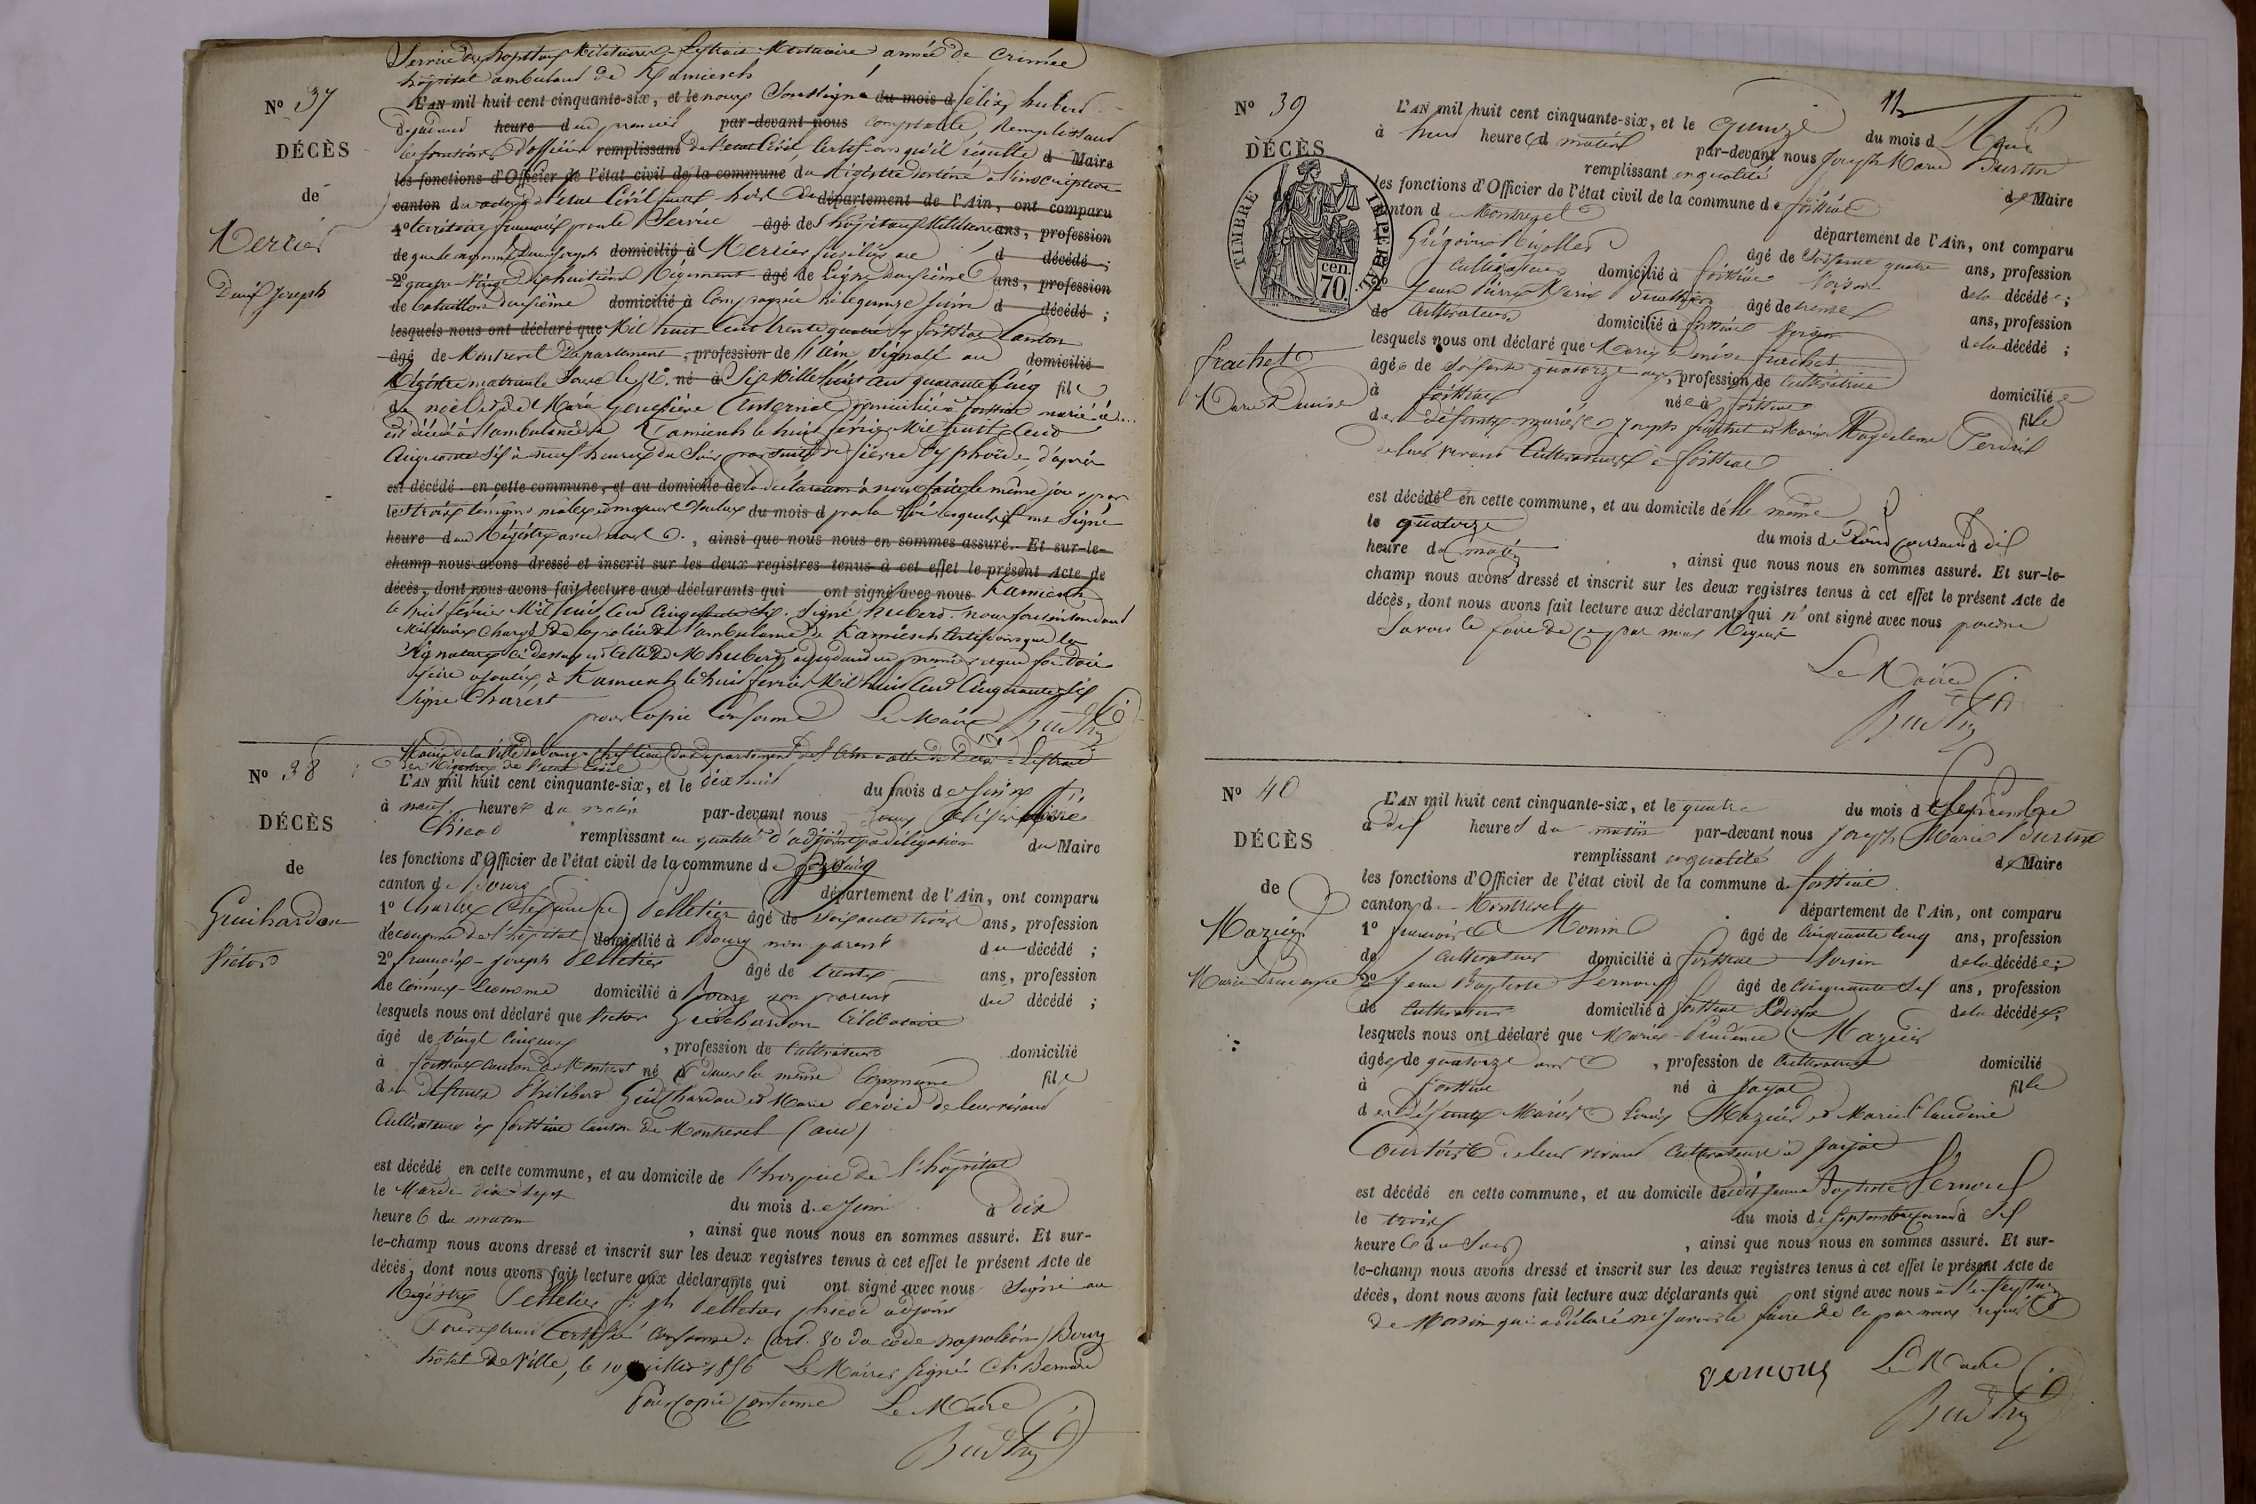 Service des hopitaux Militaires - Extrait Mortuaire année de Crimée
hôpital ambulant de Kamiesch
N° 37
L'AN mil huit cent cinquante-six, et le nous Soussigné du mois d félix huberd
adjudant heure d en premier par-devant nous comptable, Remplissant
DÉCÈS
les fonctions d'officier remplissant de l'état Civil, Certifions qu'il résulte d Maire
les fonctions d'Officier de l'état civil de la commune du Régistre destiné à l'inscription
de
canton d des actes de l'état Civil faits hors du département de l'Ain, ont comparu
1° territoire français pour le Service âgé des hôpitaux Militaires ans, profession
Mercier
de que le nommé Denis Joseph domicilié à Mercier fusilier au d décédé ;
2° quatre-vingt dixhuitième Régiment âgé de Ligne deuxième ans, profession
Denis Joseph
de bataillon deuxième domicilié à Compagnie né le quinze Juin d décédé ;
lesquels nous ont déclaré que Mil huit Cent trente quatre à foissiat Canton
âgé de Montrevel Département, profession de l'Ain Signalé au domicilié
Régistre matricule Sous le N°. né à Six Mille huit Cent quarante Cinq fils
de noël et de Marie domicilié à foissiat marié à
est décédé à l'ambulance de Kamiesch le huit février Mil huit Cent
Cinquante Six à neuf heures du Soir par Suite de fièvre typhoïde, d'après
est décédé en cette commune, et au domicile de la déclaration à nous faite le même jour par
les trois témoins mâles et majeurs voulus du mois d par la loi lesquels ont Signé
heure d au Régistre avec nous, ainsi que nous nous en sommes assuré. Et sur-le-
champ nous avons dressé et inscrit sur les deux registres tenus à cet effet le présent Acte de
décès, dont nous avons fait lecture aux déclarants qui ont signé avec nous Kamiesch
le huit février Mil huit Cent Cinquante Six. Signé huberd. nous Sousintendant
Militaire Chargé de la police de l'ambulance de Kamiesch Certifions que la
Signature Ci dessus est Celle de M huberd adjudant en premier et que foi doit
être ajoutée, à Kamiesch le huit février Mil huit Cent Cinquante Six
Signé Charést
pour Copie Conforme Le Maire
N° 38
Mairie de la Ville de Bourg, Chef lieu du département de l'Ain Extrait
des Régistres de l'état Civil
L'AN mil huit cent cinquante-six, et le dix huit du mois de Juin
à neuf heures du matin par-devant nous
DÉCÈS
Chicod remplissant en qualité d'adjoint par délégation du Maire
les fonctions d'Officier de l'état civil de la commune de Bourg
de
canton de Bourg département de l'Ain, ont comparu
Guichardon
1° Charles Pelletier âgé de soixante trois ans, profession
d'économe de l'hôpital domicilié à Bourg non parent du décédé ;
Victor
2° françois-joseph Pelletier âgé de trente ans, profession
de Commis-économe domicilié à Bourg non parent du décédé ;
lesquels nous ont déclaré que Victor Guichardon Célibataire
âgé de vingt cinq ans, profession de Cultivateur domicilié
à foissiat canton de Montrevel né dans la même Commune fils
des défunts Philibert Guichardon et Marie de leur vivant
Cultivateurs à foissiat Canton de Montrevel (ain)
est décédé en cette commune, et au domicile de l'hospice de l'hôpital
le Mardi dix-sept du mois de Juin à dix
heures du matin, ainsi que nous nous en sommes assuré. Et sur-
le-champ nous avons dressé et inscrit sur les deux registres tenus à cet effet le présent Acte de
décès, dont nous avons fait lecture aux déclarants qui ont signé avec nous Signé au
Régistre Pelletier Pelletier Chicod adjoint
Pour extrait Certifié Conforme (art. 80 du code napoléon) Bourg
hôtel de Ville, le 10 juillet 1856 Le Maire Signé Ch Bernard
Pour Copie Conforme Le Maire
11
N° 39
L'AN mil huit cent cinquante-six, et le quinze du mois d'Août
à huit heures du matin par-devant nous Joseph Marie
DÉCÈS
remplissant en qualité de Maire
les fonctions d'Officier de l'état civil de la commune de foissiat
TIMBRE IMPÉRIAL
70 cen.
canton de Montrevel département de l'Ain, ont comparu
Grégoire âgé de Soixante quatre ans, profession
Cultivateur domicilié à foissiat Voisin de la décédée ;
Jean Pierre Marie âgé de trente ans, profession
de Cultivateur domicilié à foissiat Voisin de la décédée ;
frachet
lesquels nous ont déclaré que Marie Denise frachet
âgée de Soixante quatorze ans, profession de Cultivatrice domiciliée
Marie Denise
à foissiat née à foissiat fille
des défunts mariés Joseph frachet et Marie Magdeleine
de leur vivant Cultivateurs à foissiat
est décédé en cette commune, et au domicile d'elle même
le quatorze du mois d'Août courant à dix
heure du matin, ainsi que nous nous en sommes assuré. Et sur-le-
champ nous avons dressé et inscrit sur les deux registres tenus à cet effet le présent Acte de
décès, dont nous avons fait lecture aux déclarants qui n'ont signé avec nous pour ne
Savoir le faire de ce par nous Requis
Le Maire
N° 40
L'AN mil huit cent cinquante-six, et le quatre du mois de Septembre
à dix heures du matin par-devant nous Joseph Marie
DÉCÈS
remplissant en qualité de Maire
les fonctions d'Officier de l'état civil de la commune de foissiat
de
canton de Montrevel département de l'Ain, ont comparu
Mazuir
1° françois Monin âgé de Cinquante Cinq ans, profession
de Cultivateur domicilié à foissiat Voisin de la décédée ;
Marie Prudence
2° Jean Baptiste Vernoux âgé de Cinquante Six ans, profession
de Cultivateur domicilié à foissiat Voisin de la décédée ;
lesquels nous ont déclaré que Marie-Prudence Mazuir
âgée de quatorze ans, profession de Cultivatrice domicilié
à foissiat né à Jayat fille
des Défunts Mariés Louis Mazuir et Marie Claudine
de leur vivant Cultivateurs à Jayat
est décédé en cette commune, et au domicile dudit Jean Baptiste Vernoux
le trois du mois de Septembre courant à Six
heures du Soir, ainsi que nous nous en sommes assuré. Et sur-
le-champ nous avons dressé et inscrit sur les deux registres tenus à cet effet le présent Acte de
décès, dont nous avons fait lecture aux déclarants qui ont signé avec nous à l'exception
de Monin qui a déclaré ne Savoir le faire de Ce par nous requis
vernoux Le Maire